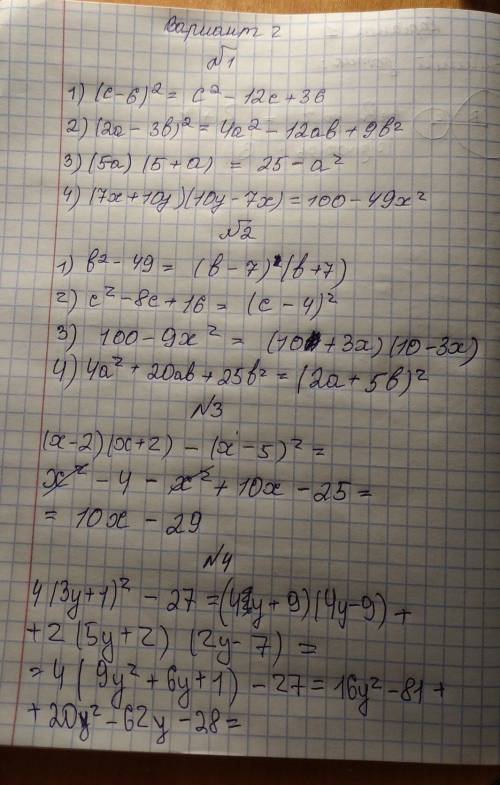 Вариант 2
№1
1) (c-6)² = c² - 12c + 36
2) (2a - 3b)² = 4a² - 12ab + 9b²
3) (5a) (5+a) = 25 - a²
4) (7x+10y)(10y-7x) = 100 - 49x²
№2
1) b² - 49 = (b-7)(b+7)
2) c² - 8c + 16 = (c-4)²
3) 100 - 9x² = (10+3x)(10-3x)
4) 4a² + 20ab + 25b² = (2a+5b)²
№3
(x-2)(x+2) - (x-5)² =
x² - 4 - x² + 10x - 25 =
= 10x - 29
№4
4(3y+1)² - 27 = (4y+9)(4y-9) +
+ 2(5y+2) (2y-7) =
= 4(9y² + 6y + 1) - 27 = 16y² - 81 +
+ 20y² - 62y - 28 =